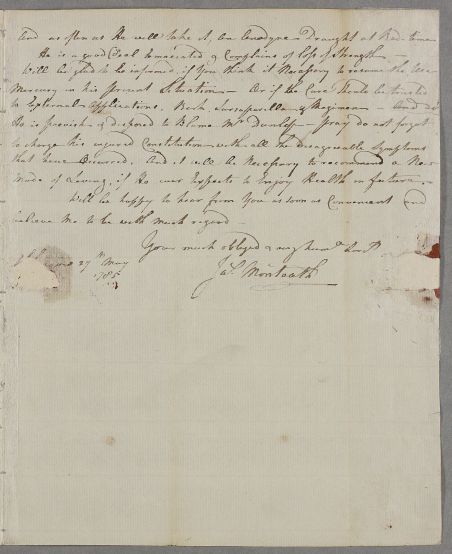 And as often as He will take it, an Anodyne Draught at Bed time
He is a good deal Emaciated & Complains of loss of Strength —
Will be glad to be informed if you think it Necessary to resume the Use
Mercury in his present Situation — Or if the Cure Should be trusted
to External Applications, Bark Sarsaparilla & Regimen — And as
He is peevish & disposed to Blame Mr Dunlop — pray do not forget
to charge his injured Constitution with all the disagreeable Symptoms
that have Occurred. And it will be Necessary to recommend a New
Mode of Living, if He ever expects to Enjoy Health in future —
Will be happy to hear from You as soon as Convenient And
believe me to be with much regard —
Your much obliged & very humle Servt
27th May
1785
Jas. Monteath